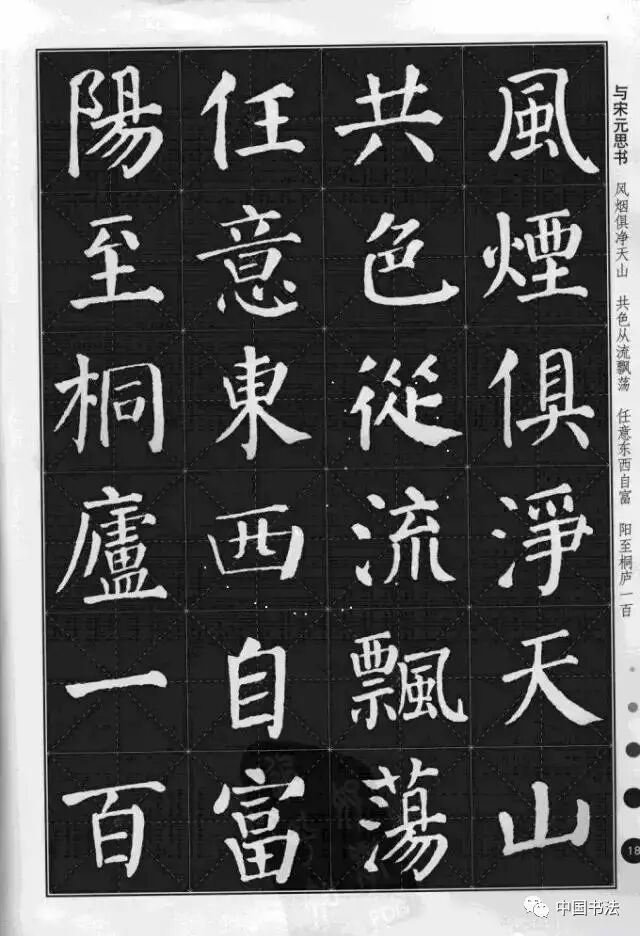 风烟俱净天山 共色从流飘荡 任意东西自富 阳至桐庐一百
与宋元思书
風煙俱淨天山
共色從流飄蕩
任意東西自富
陽至桐廬一百
18
中国书法